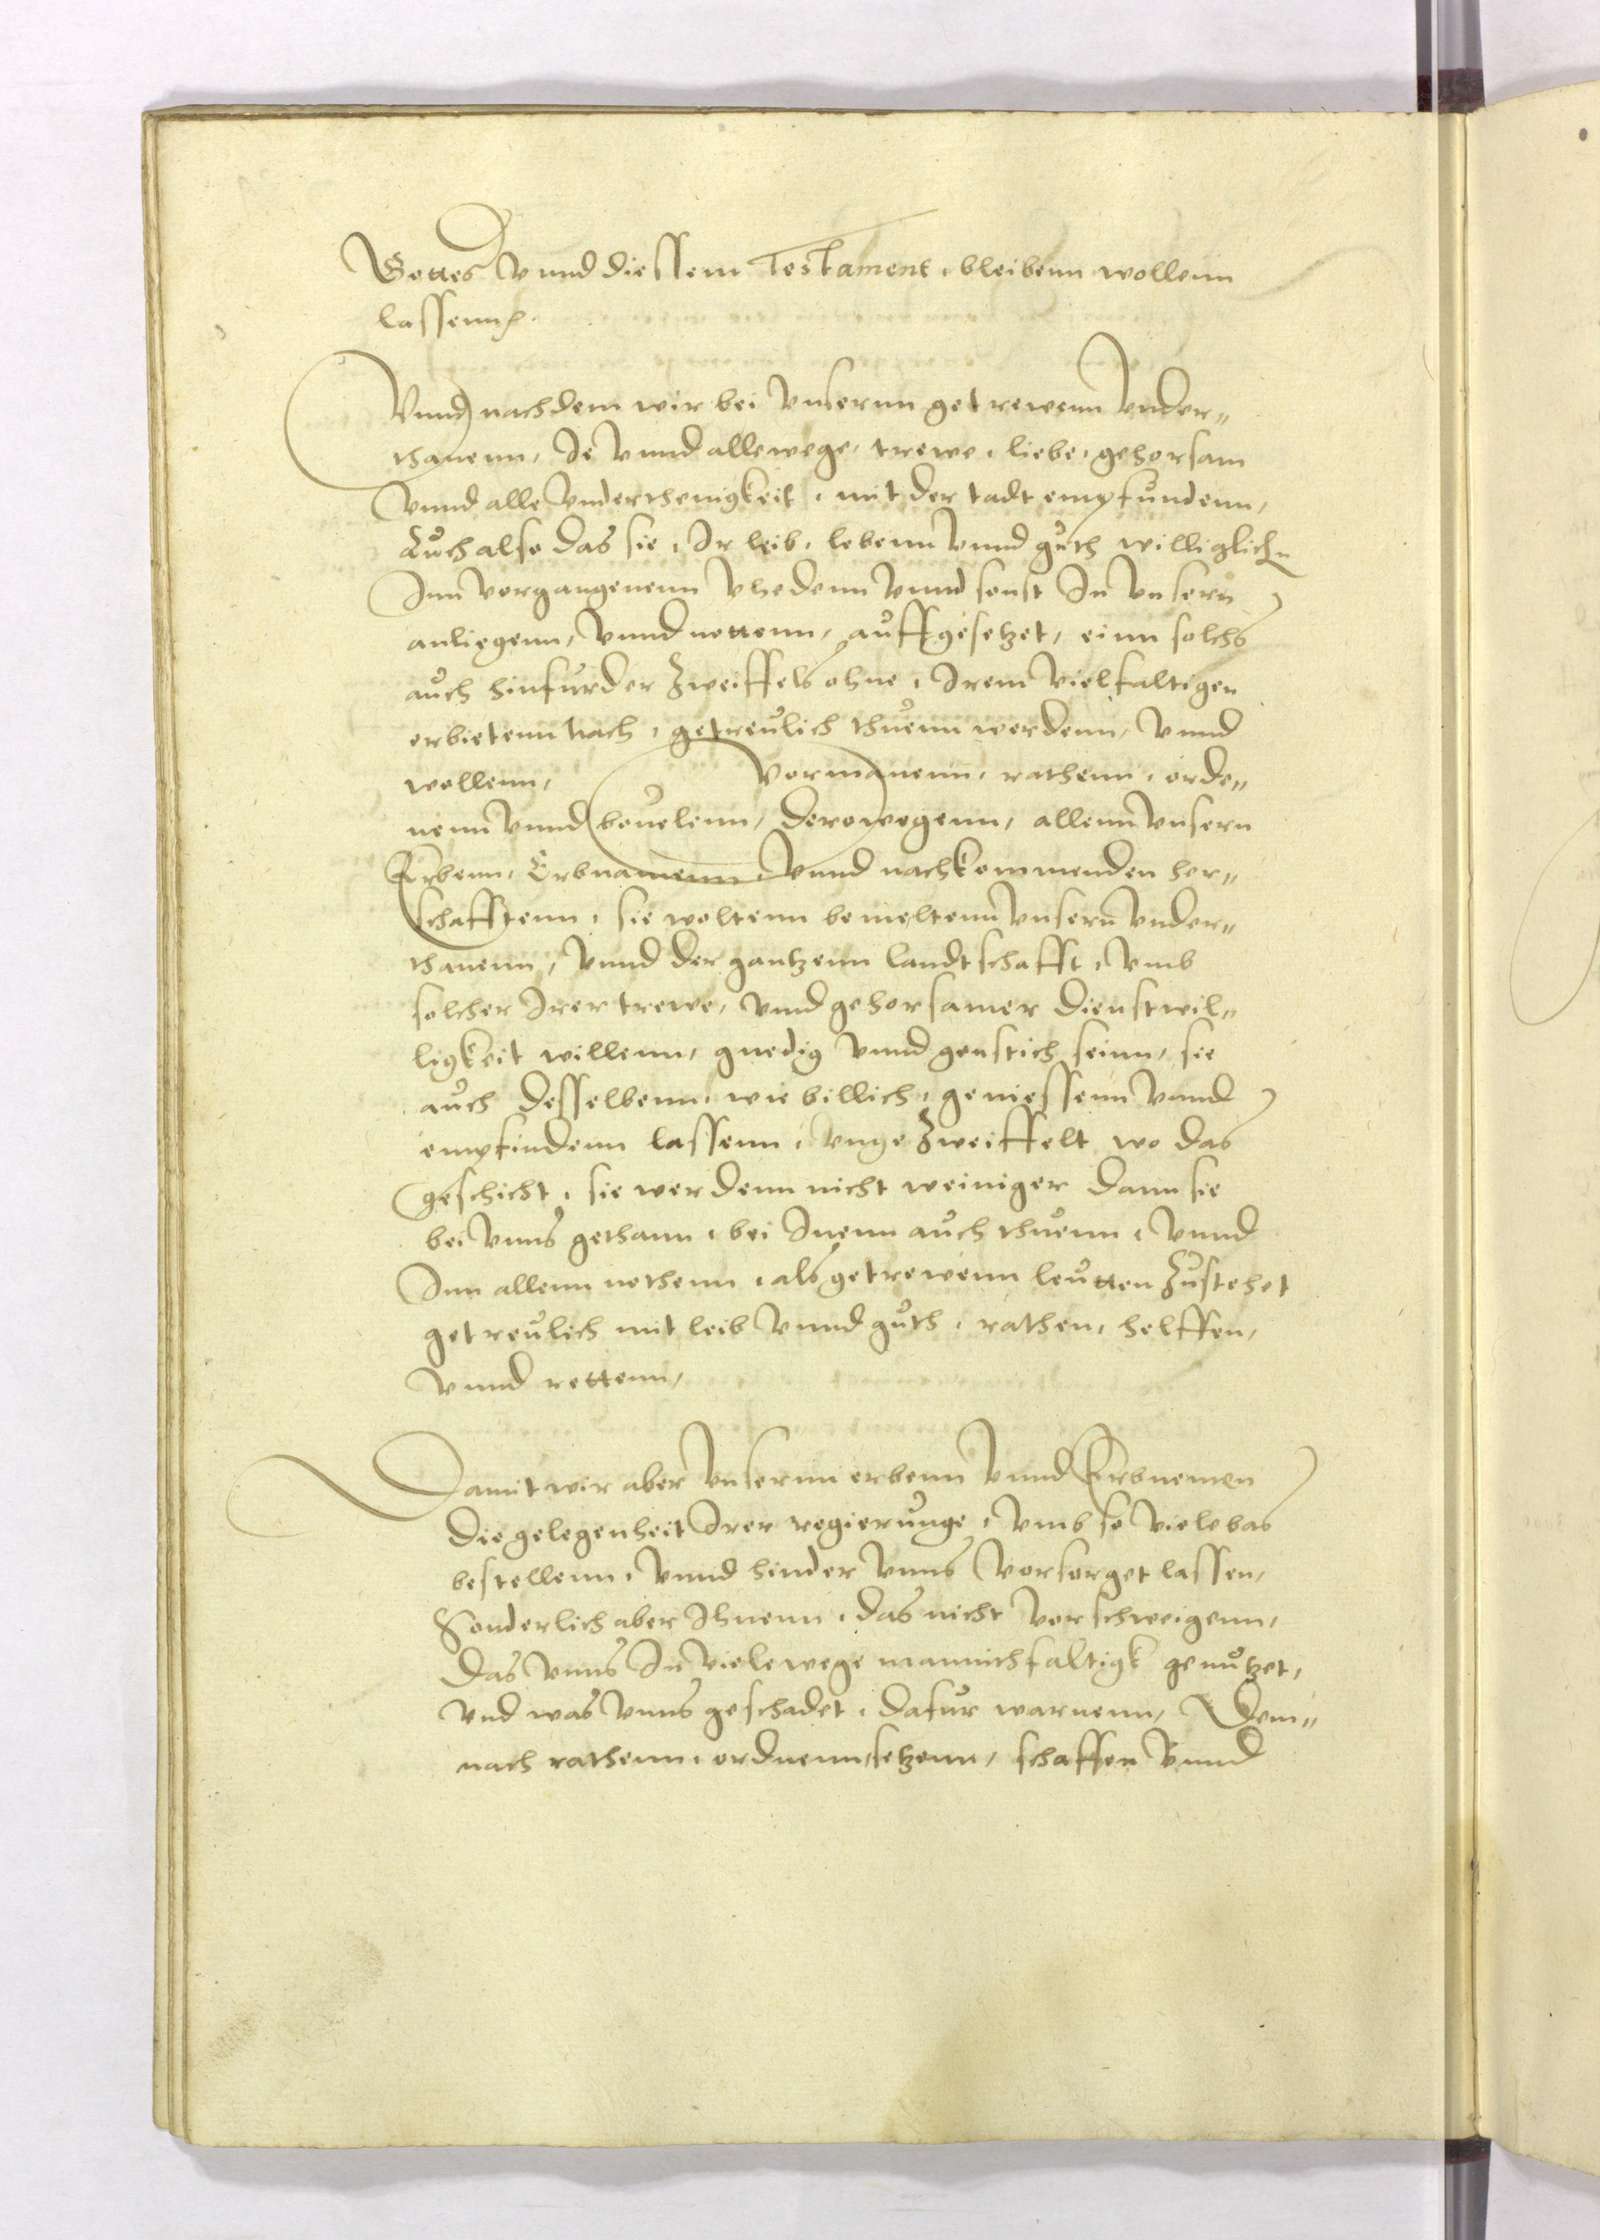 Gottes vnnd diessem Testament, bleibenn wollenn
lassenn.
Vnnd nachdem wir bei vnsernn getrewenn vnder„
thanenn, Je vnnd allewege, trewe, liebe, gehorsam
vnnd alle vnderthenigkeit, mit der tadt empfundenn,
Auch also das sie, Ir leib, lebenn vnnd guth williglich
Inn vergangenenn vhedenn vnnd sonst In vnsern
anliegenn, vnnd nottenn, auffgesetzet, einn solchs
auch hinfurder Zweiffels ohne, Irem vielfaltigen
erbietenn nach, getreulich thuenn werdenn, vnnd
wollenn, Vormanenn, rathenn, orde„
nenn vnnd beuelenn, derowegenn, allenn vnsern
Erbenn, Erbnamenn, vnnd nachkommenden her„
schafftenn, sie woltenn bemeltenn vnsern vnder„
thanenn, vnnd der gantzenn landtschafft, vmb
solcher Irer trewe, vnnd gehorsamer dienstwil„
ligkeit willenn, gnedig vnnd genstich seinn, sie
auch desselbenn, wie billich, geniessenn vnnd
empfindenn lassenn, vngeZweiffelt wo das
geschicht, sie werdenn nicht weiniger dann sie
bei vnns gethann, bei Inenn auch thuenn, vnnd
Inn allenn nothenn, als getrewenn leutten Zustehet
getreulich mit leib vnnd guth, rathen, helffen,
vnnd rettenn,
Damit wir aber vnsernn erbenn vnnd Erbnemen
die gelegenheit Irer regierunge, vmb so viele bas
bestellenn, vnnd hinder vnns vorsorget lassen,
Sonderlich aber Ihnenn, das nicht vorschweigenn,
das vnns In viele wege mannichfaltigk genutzet,
vnd was vnns geschadet, dafur warnenn, Dem„
nach rathenn, ordnenn, setzenn, schaffen vnnd